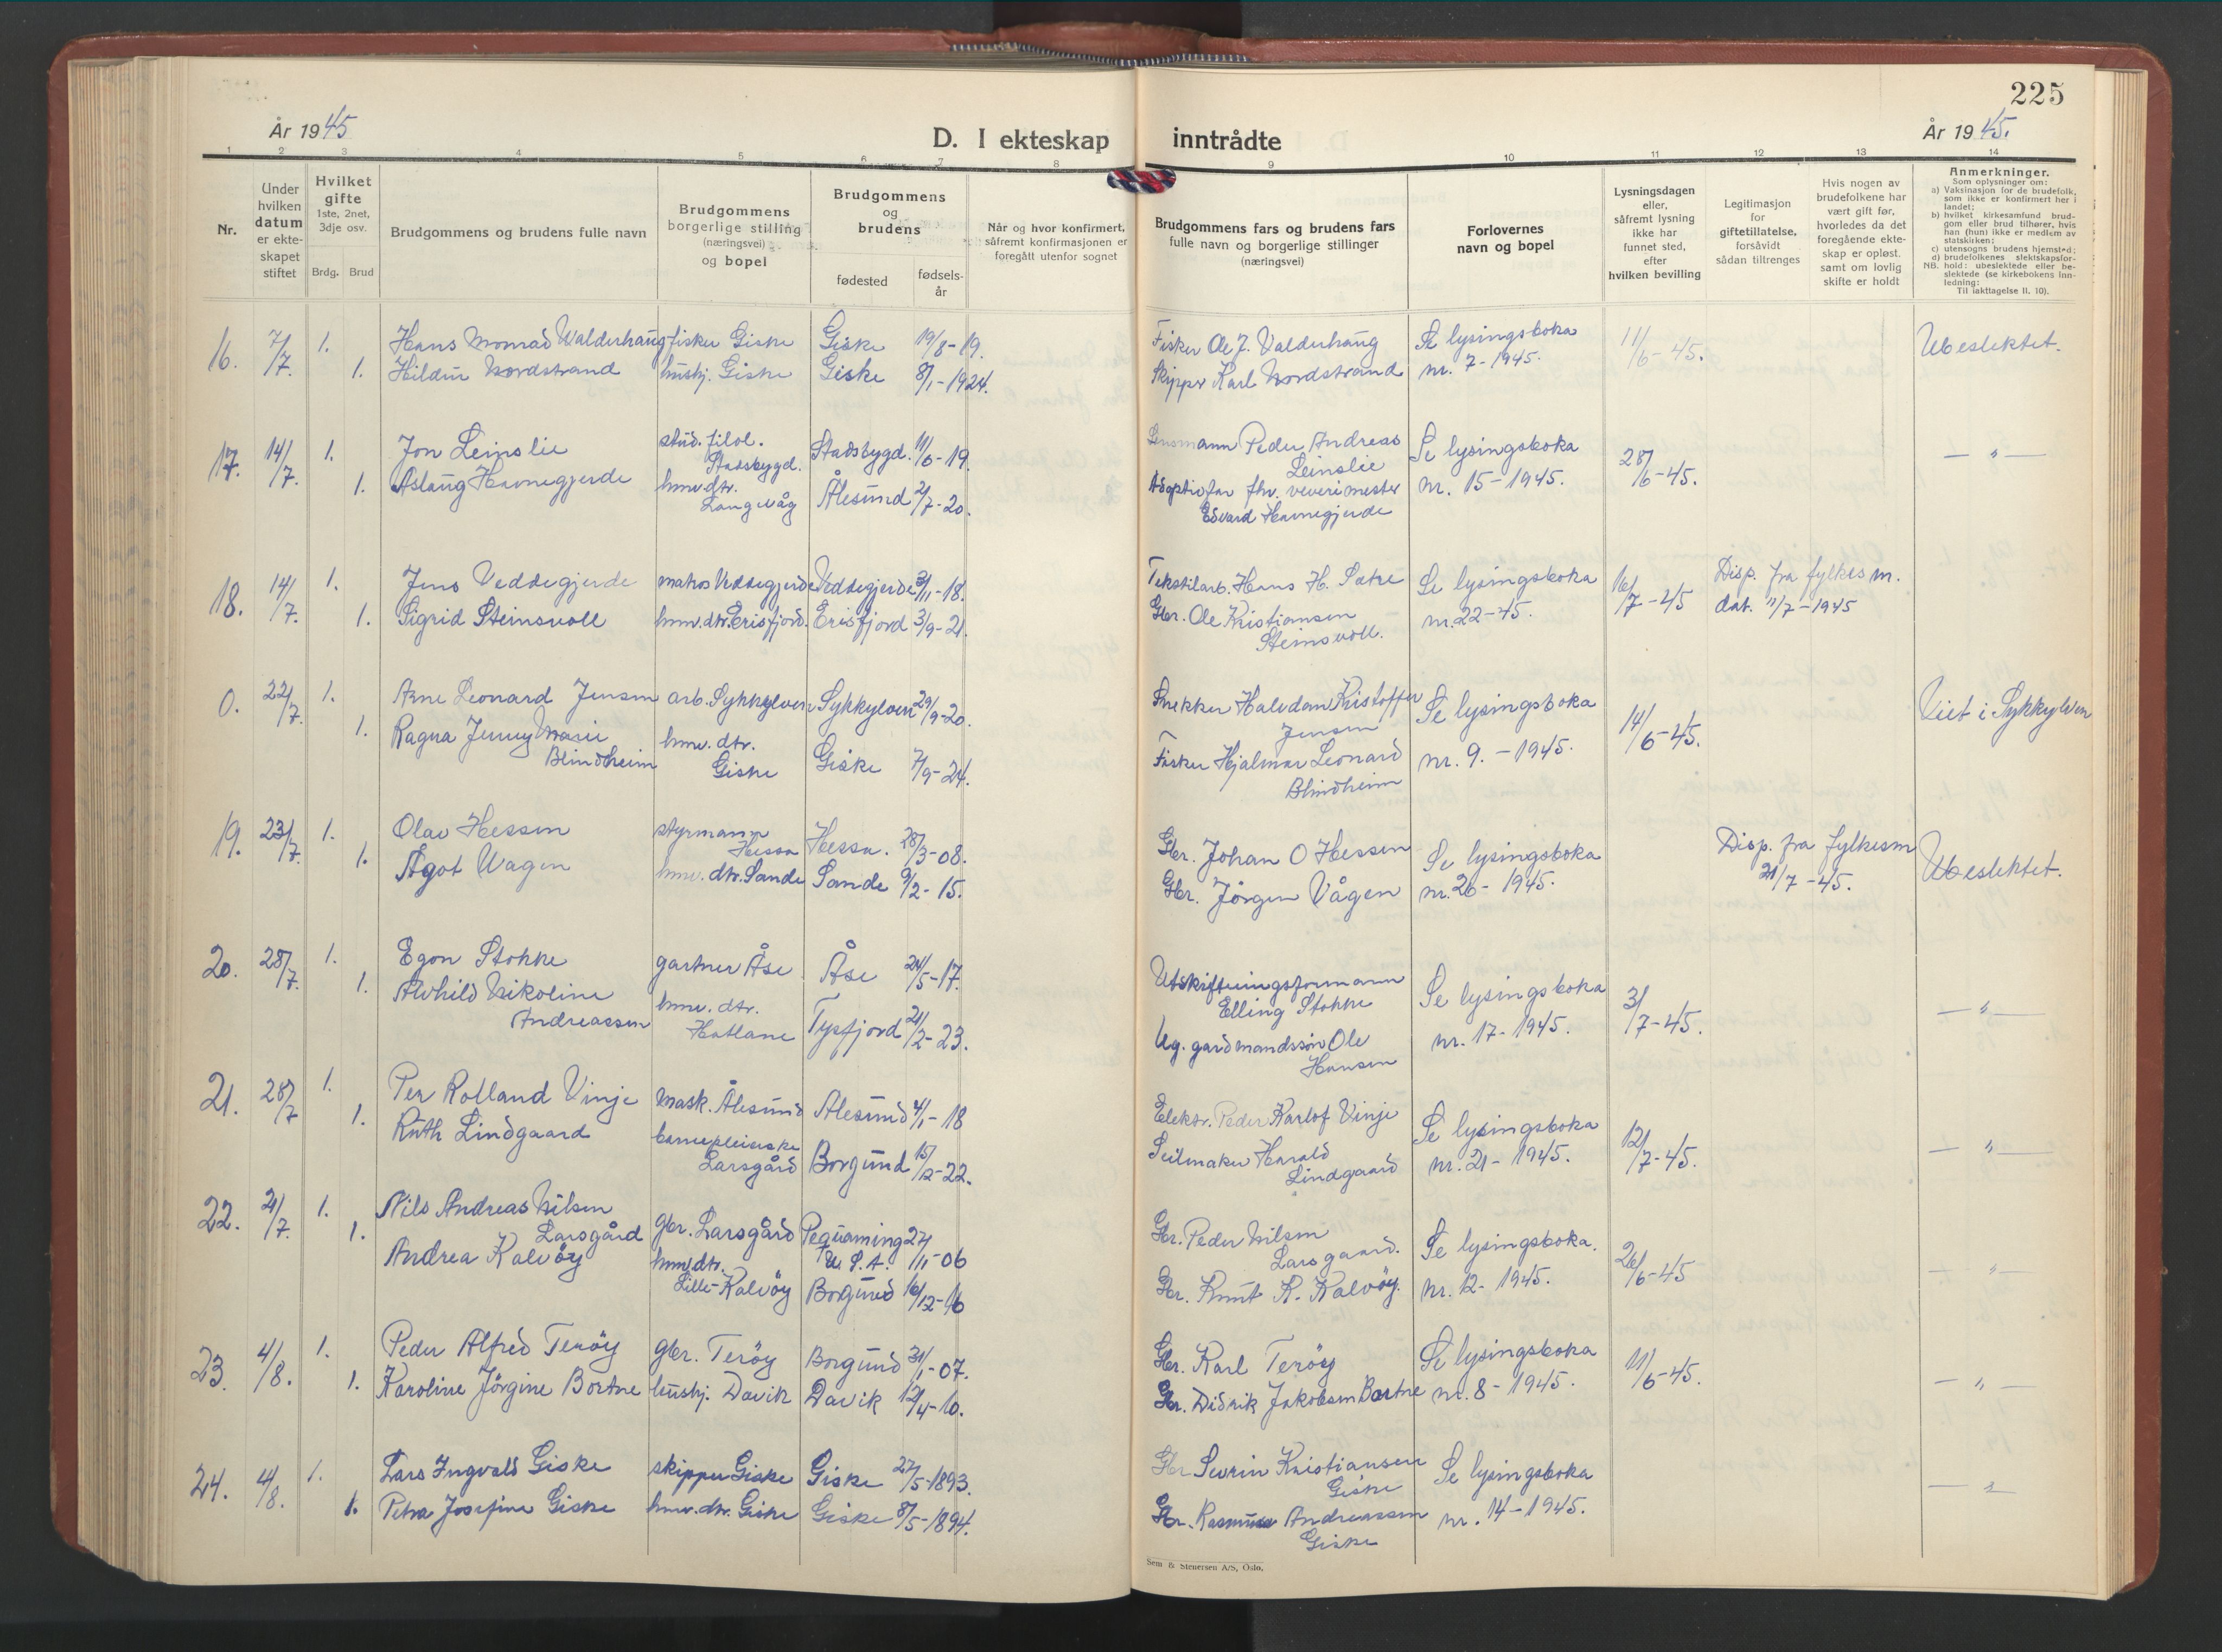 225
År 1945
D. I ekteskap inntrådte
År 1945.
1 2 3 4 5 6 7 8 9 10 11 12 13 14
Nr.
Under hvilken datum er ekteskapet stiftet
Hvilket gifte
1ste, 2net, 3dje osv.
Brdg. Brud
Brudgommens og brudens fulle navn
Brudgommens borgerlige stilling (næringsvei) og bopel
Brudgommens og brudens
fødested
fødselsår
Når og hvor konfirmert, såfremt konfirmasjonen er foregått utenfor sognet
Brudgommens fars og brudens fars fulle navn og borgerlige stillinger (næringsvei)
Forlovernes navn og bopel
Lysningsdagen eller, såfremt lysning ikke har funnet sted, efter hvilken bevilling
Legitimasjon for giftetillatelse, forsåvidt sådan tiltrenges
Hvis nogen av brudefolkene har vært gift før, hvorledes da det foregående ekteskap er opløst, samt om lovlig skifte er holdt
Anmerkninger.
Som oplysninger om:
a) Vaksinasjon for de brudefolk, som ikke er konfirmert her i landet;
b) hvilket kirkesamfund brudgom eller brud tilhører, hvis han (hun) ikke er medlem av statskirken;
c) utensogns brudens hjemsted;
d) brudefolkenes slektskapsforhold: ubeslektede eller beslektede (se kirkebokens innledning:
NB.
Til iakttagelse II, 10).
16. 7/7. 1. Hans Monrad Walderhaug fisker Giske Giske 19/8-19. Fisker Ole J. Valderhaug Se lysingsboka 11/6-45. Ubeslektet.
1. Hildur Nordstrand hushj. Giske Giske 8/1-1924. Skipper Karl Nordstrand nr. 7-1945.
17. 14/7. 1. Jon Leinslie stud. filol. Stadsbygd. Stadsbygd. 11/6-19. Lensmann Peder Andreas Leinslie Se lysingsboka 28/6-45. — " —
1. Aslaug Havnegjerde hmv. dtr. Langevåg Ålesund 2/7-20. Adoptivfar fhv. veverimester Edvard Havnegjerde nr. 15-1945.
18. 14/7. 1. Jens Veddegjerde matros Veddegjerde Veddegjerde 3/1-18. Tekstilarb. Hans H. Sætre Se lysingsboka 16/7-45 Disp. fra fylkesm.
1. Sigrid Steinsvoll hmv. dtr. Erisfjord. Erisfjord 3/9-21. Gbr. Ole Kristiansen Steinsvoll. nr. 22-45. dat. 11/7-1945
0. 22/7. 1. Arne Leonard Jensen arb. Sykkylven Sykkylven 29/9-20. Snekker Halvdan Kristoffer Jensen Se lysingsboka 14/6-45. Viet i Sykkylven
1. Ragna Jenny Marie Blindheim hmv. dtr. Giske Giske 7/9-24. Fisker Hjalmar Leonard Blindheim nr. 9. - 1945.
19. 23/7. 1. Olav Hessen styrmann Hessa Hessa. 28/3-08. Gbr. Johan O Hessen Se lysingsboka Disp. fra fylkesm Ubeslektet.
1. Ågot Wagen hmv. dtr. Sande Sande 9/2-15. Gbr. Jörgen Vågen nr. 26-1945. 21/7-45.
20. 28/7. 1. Egon Stokke gartner Åse Åse 24/5-17. Utskiftningsformann Elling Stokke Se lysingsboka 3/7-45. — " —
1. Alvhild Nikoline Andreassen hmv. dtr. Hatlane Tysfjord 21/2-23. Ug. gardmandssön Ole Hansen nr. 17-1945.
21. 28/7 1. Per Rolland Vinje mask. Ålesund Ålesund 4/1-18 Elektr. Peder Karlof Vinje Se lysingsboka 12/7-45. — " —
1. Ruth Lindgaard barnepleierske Larsgård Borgund 15/12-22. Seilmaker Harald Lindgaard nr. 21-1945.
22. 21/7. 1. Nils Andreas Nilsen Larsgård gbr. Larsgård Pequaming U.S.A. 27/11-06 Gbr. Peder Nilsen Larsgaard. Se lysingsboka. 26/6-45 — " —
1. Andrea Kalvöy hmv. dtr. Lille-Kalvöy Borgund 16/12-16 Gbr. Knut K. Kalvöy. nr. 12-1945.
23. 4/8. 1. Peder Alfred Teröy gbr. Teröy Borgund 31/1-07. Gbr. Karl Teröy Se lysingsboka 11/6-45. — " —
1. Karoline Jörgine Bortne hushj. Davik Davik 12/4-10. Gbr. Didrik Jakobsen Bortne nr. 8-1945.
24. 4/8. 1. Lars Ingvald Giske skipper Giske Giske 27/5-1893. Gbr Severin Kristiansen Giske Se lysingsboka — " —
1. Petra Josefine Giske hmv. dtr. Giske Giske 8/5-1894. Gbr. Rasmus Andreassen Giske nr. 14-1945.
Sem & Stenersen A/S, Oslo.